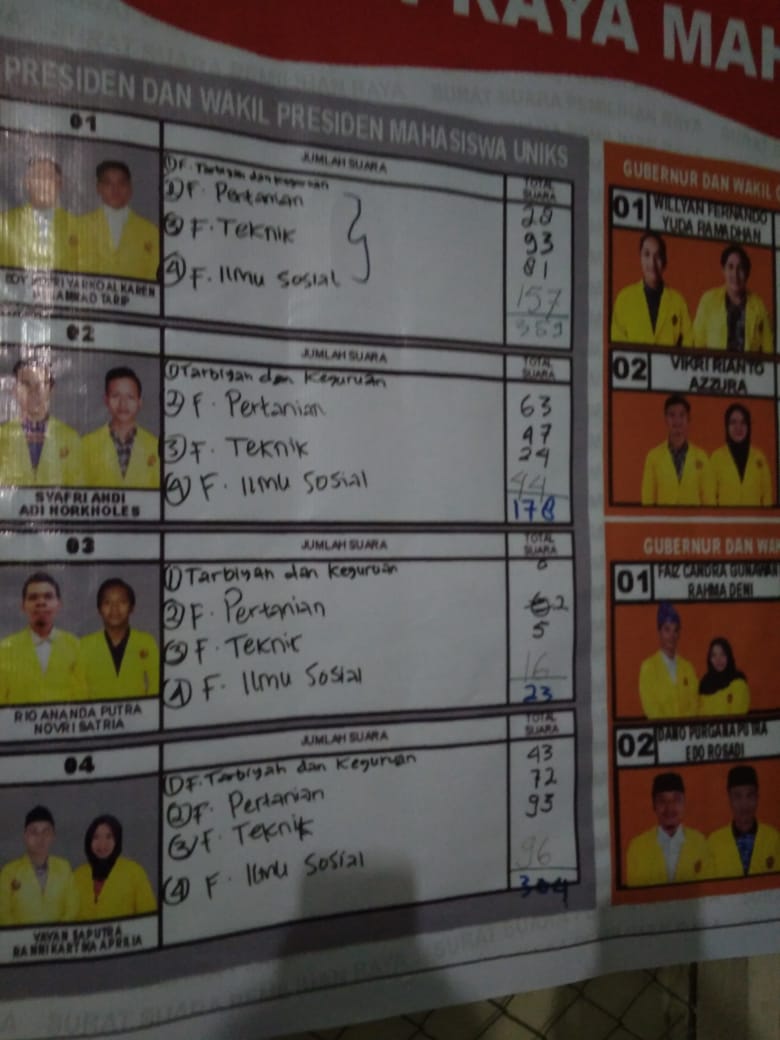 RAYA MAH
PRESIDEN DAN WAKIL PRESIDEN MAHASISWA UNIKS
01
JUMLAH SUARA
TOTAL SUARA
① F. Tarbiyah dan Keguruan
② F. Pertanian
28
③ F. Teknik
93
④ F. Ilmu Sosial
81
157
359
02
JUMLAH SUARA
TOTAL SUARA
① Tarbiyah dan Keguruan
② F. Pertanian
63
③ F. Teknik
47
24
④ F. Ilmu Sosial
44
178
SYAFRI ANDI
ADI NORKHOLES
03
JUMLAH SUARA
TOTAL SUARA
① Tarbiyah dan Keguruan
0
② F. Pertanian
2
③ F. Teknik
5
④ F. Ilmu Sosial
16
23
RIO ANANDA PUTRA
NOVRI SATRIA
04
JUMLAH SUARA
TOTAL SUARA
① F. Tarbiyah dan Keguruan
43
② F. Pertanian
72
③ F. Teknik
93
④ F. Ilmu Sosial
96
304
YAYAN SAPUTRA
GUBERNUR DAN WAKIL
01
WILLYAN FERNANDO
YUDA RAMADHAN
02
VIKRI RIANTO
AZZURA
GUBERNUR DAN WAK
01
FAIZ CANDRA GUNAWAN
RAHMA DENI
02
EDO ROSADI
SURAT SUARA PEMILIHAN RAYA